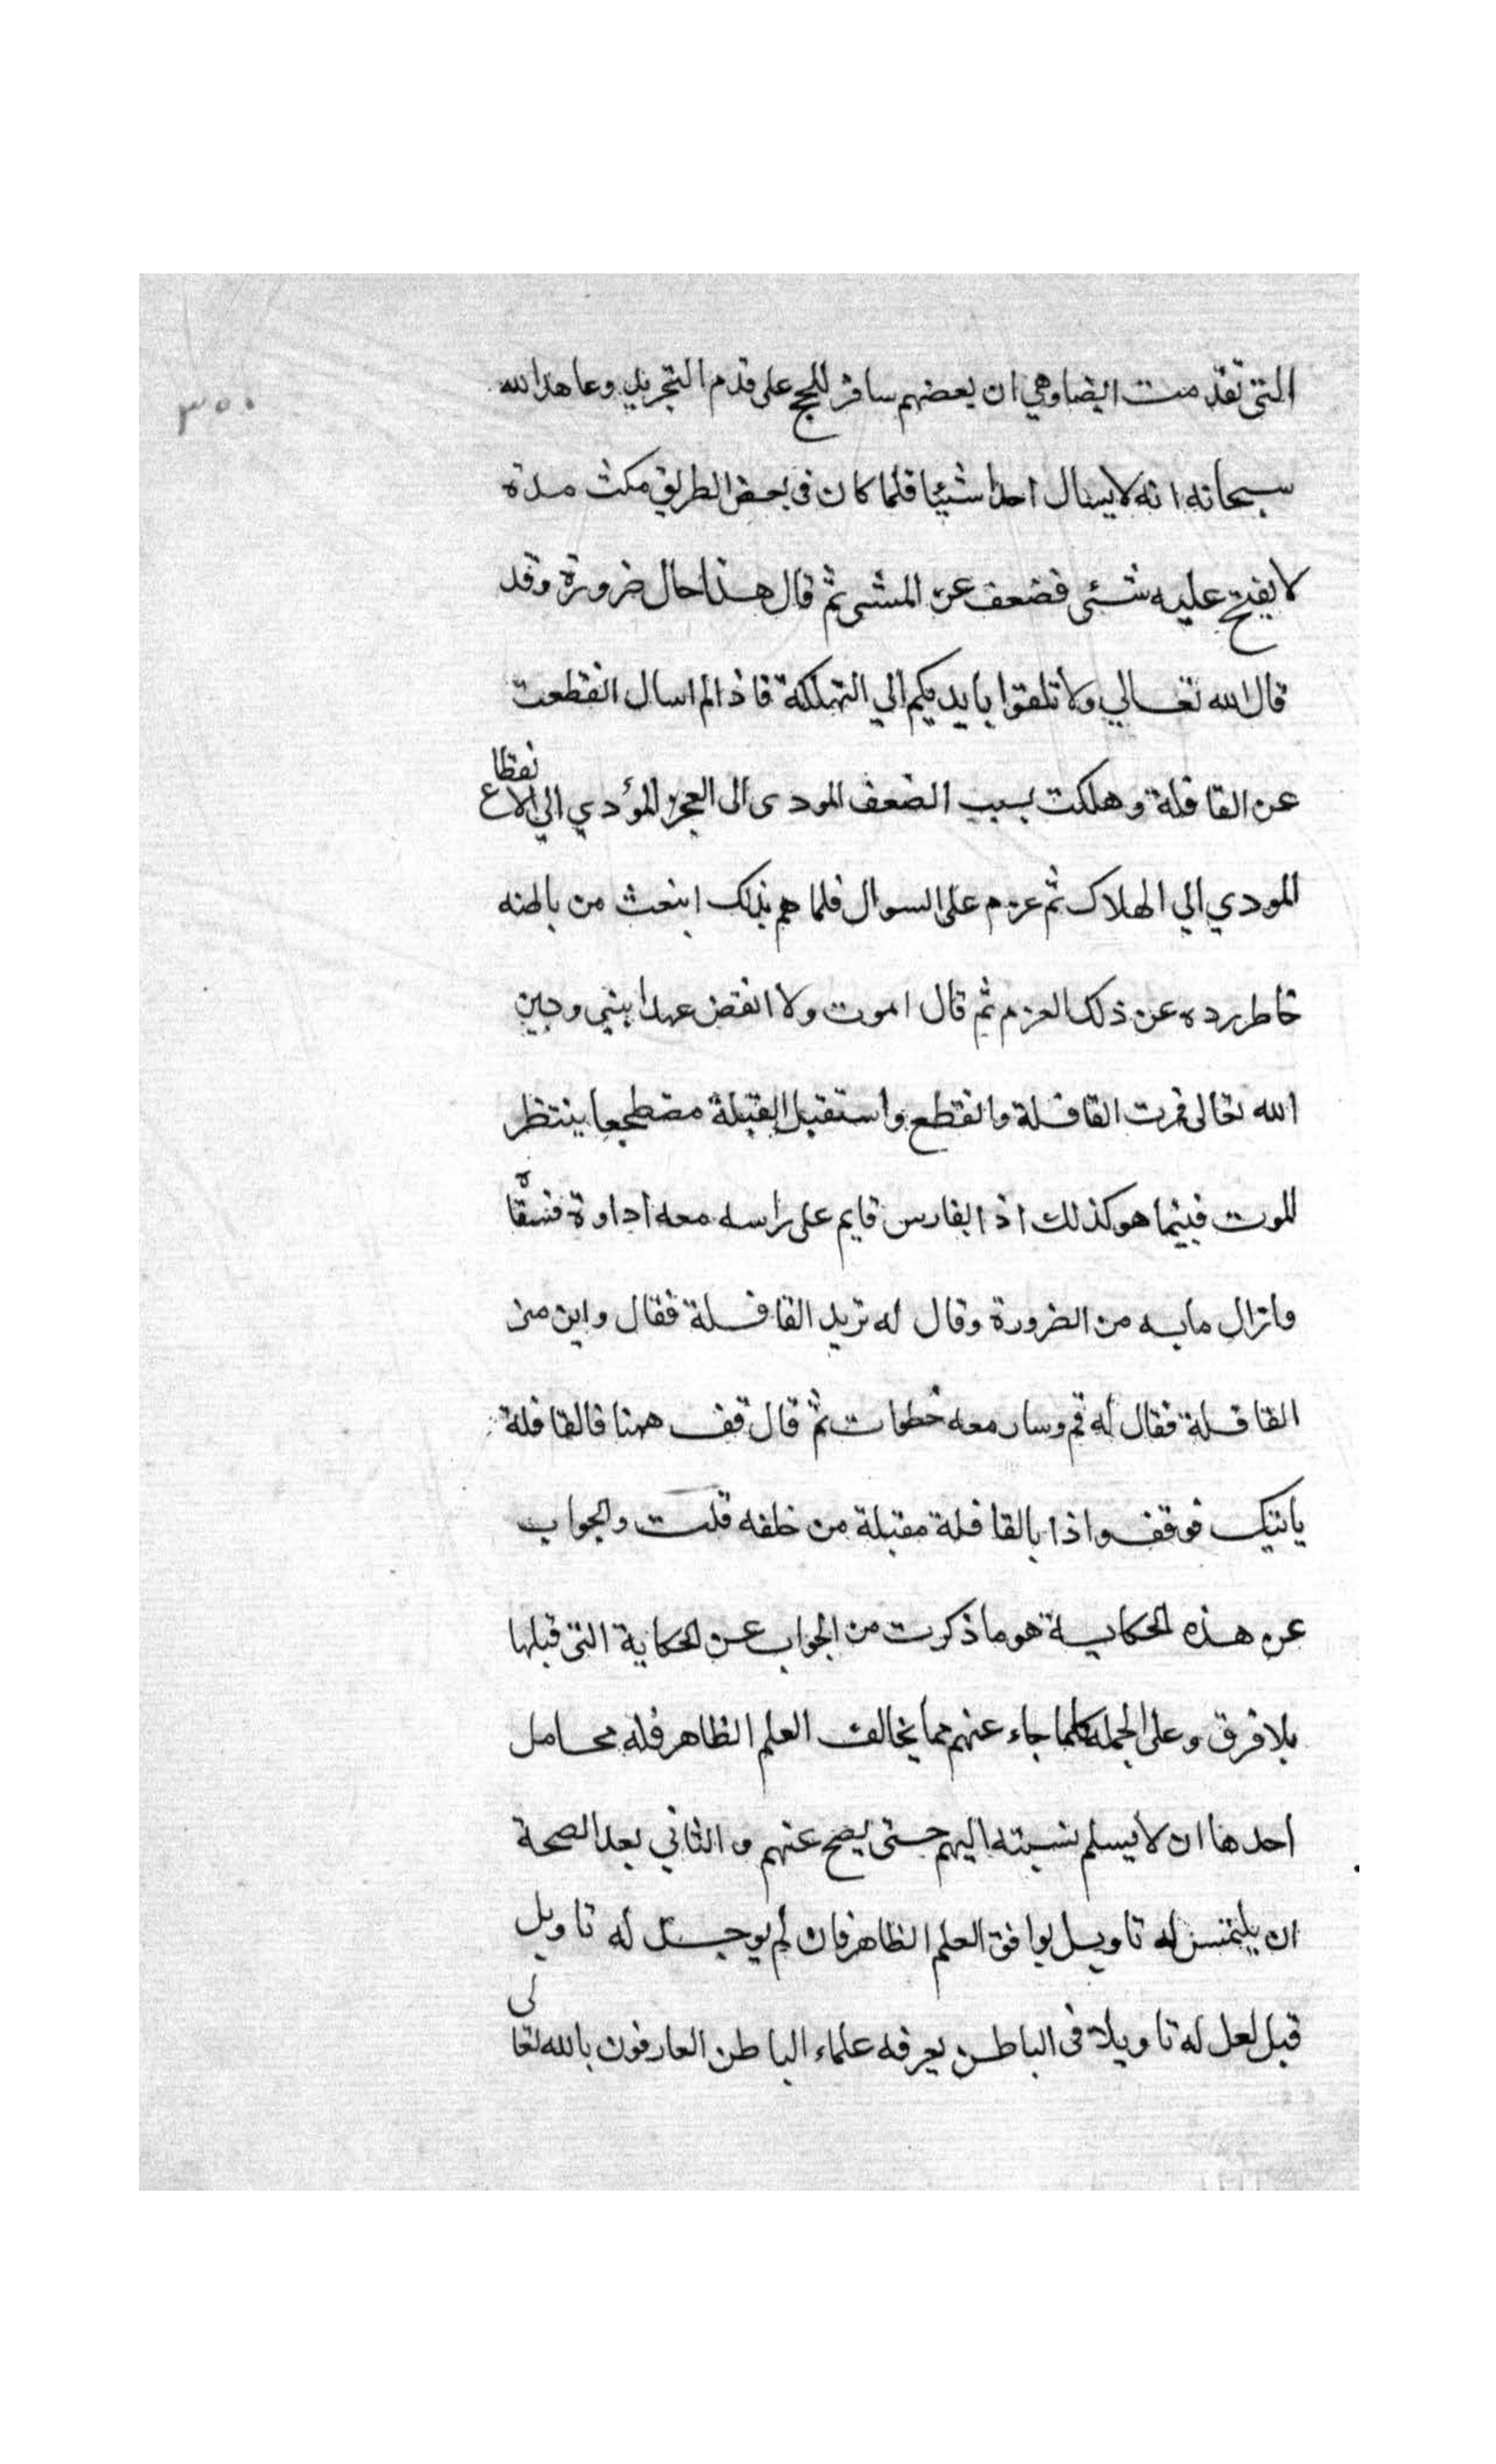 ٣٥٠
التي تقدمت ايضا وهي ان بعضهم سافر للحج على قدم التجريد وعاهد الله
سبحانه انه لا يسال احدا شيئا فلما كان في بعض الطريق مكث مدة
لا يفتح عليه شئى فضعف عن المشى ثم قال هذا حال ضرورة وقد
قال الله تعالي ولا تلقوا بايديكم الي التهلكة فاذا لم اسال انقطعت
عن القافلة وهلكت بسبب الضعف المودى الى العجز المؤدي الي الانقطاع
المودي الي الهلاك ثم عزم على السوال فلما هم بذلك انبعث من باطنه
خاطر رده عن ذلك العزم ثم قال اموت ولا انقض عهدا بيني وبين
الله تعالى فمرت القافلة وانقطع واستقبل القبلة مضطجعا ينتظر
الموت فبينما هو كذلك اذا بفارس قايم على راسه معه اداوة فسقاه
وازال ما به من الضرورة وقال له تريد القافلة فقال واين منى
القافلة فقال له قم وسار معه خطوات ثم قال قف ههنا فالقافلة
ياتيك فوقف واذا بالقافلة مقبلة من خلفه قلت والجواب
عن هذه الحكاية هو ما ذكرت من الجواب عن الحكاية التى قبلها
بلا فرق وعلى الجملة كلما جاء عنهم مما يخالف العلم الظاهر فله محامل
احدها ان لا يسلم نسبته اليهم حتى يصح عنهم والثاني بعد الصحة
ان يلتمس له تاويل يوافق العلم الظاهر فان لم يوجد له تاويل
قيل لعل له تاويلا فى الباطن يعرفه علماء الباطن العارفون بالله تعالى